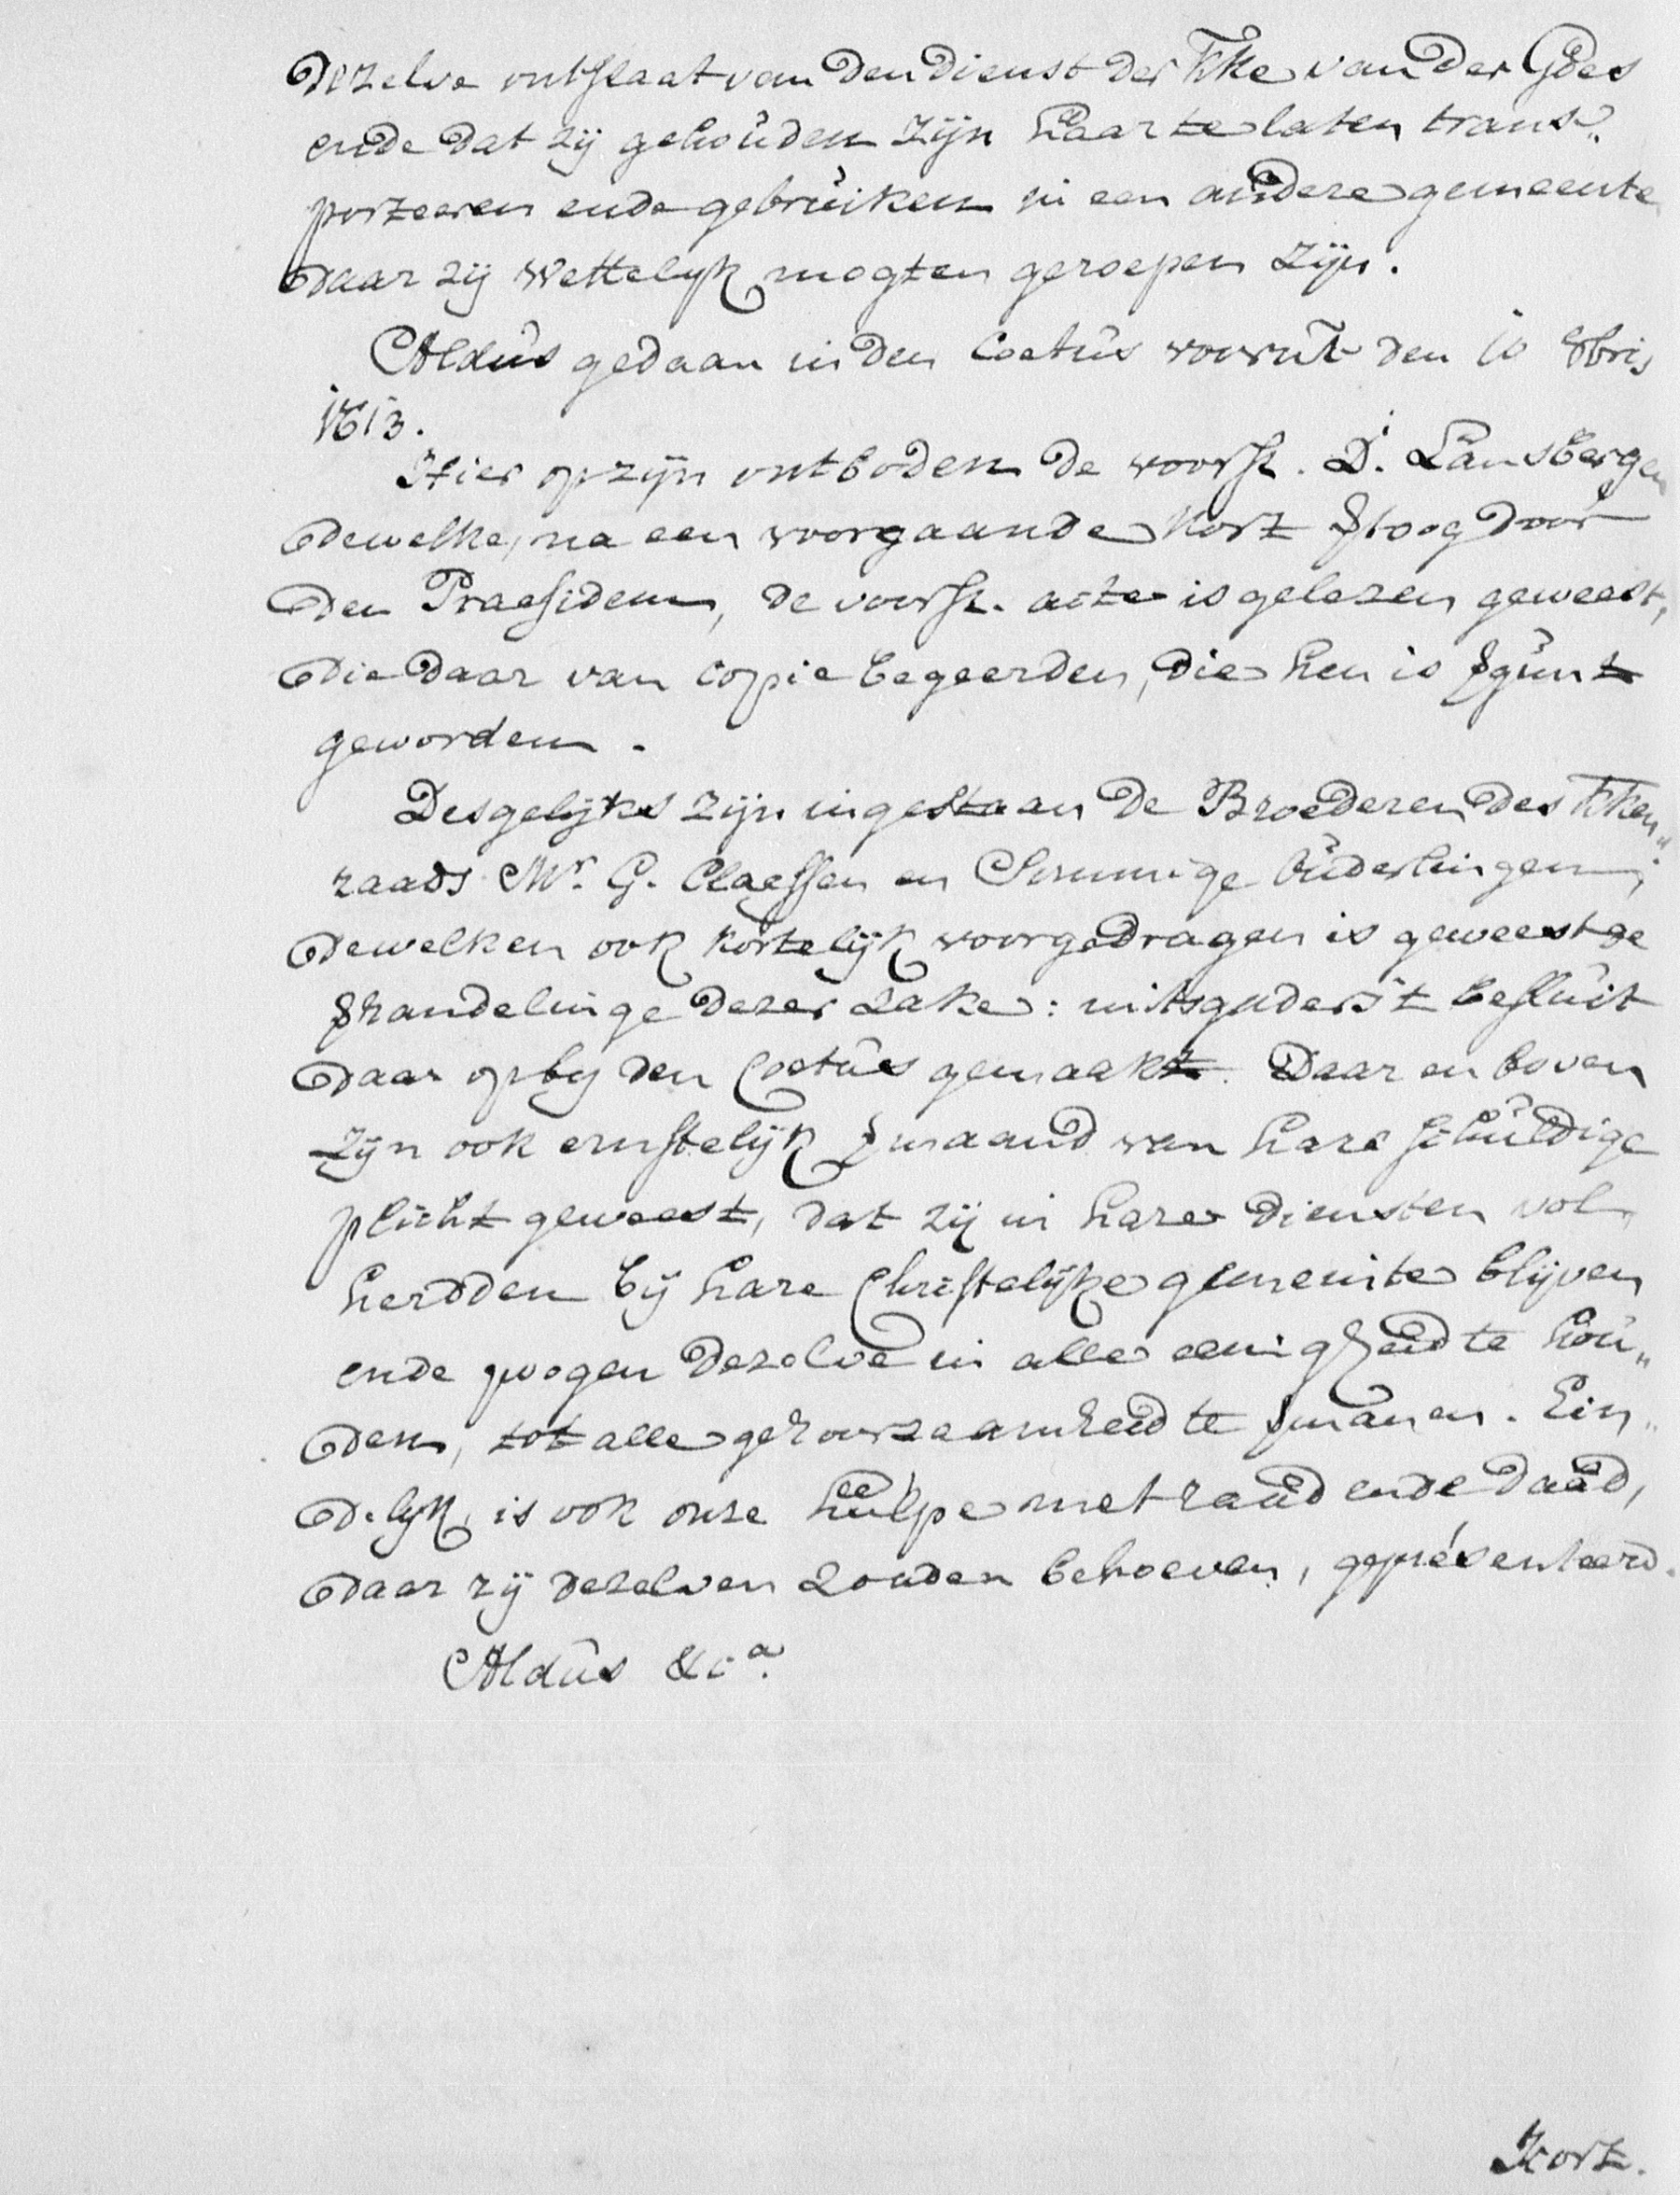 dezelve ontslaat van den dienst der Kke van der Goes
ende dat zij gehouden zijn haar te laten trans„
porteeren ende gebruiken in een andere gemeente
daar zij wettelijk mogten geroepen zijn.
Aldus gedaan in den Coetus voorn̅t den 10 8bris
1613.
Hier op zijn ontboden de voors. D. Lansbergen
dewelke, na een voorgaande kort door
den Praesidem, de voors. acte is gelezen geweest,
die daar van copie begeerden, die hen is ꝟgunt
geworden.
Desgelijks zijn ingestaan de Broederen des Kken„
raads Mr. G. Claessen en Sommige Ouderlingen,
dewelken ook kortelijk voorgedragen is geweest de
ꝟhandelinge dezer zake: mitsgaders 't besluit
daar op by den Coetus gemaakt. Daar en boven
zijn ook ernstelijk ꝟmaand van hare schuldige
plicht geweest, dat zij in hare diensten vol„
herdden bij hare Christelijke gemeente blijven
ende pogen dezelve in alle eenigheid te hou„
den, tot alle gehoorzaamheid te ꝟmanen. Ein„
delijk, is ook onze hulpe met raad ende daad,
daar zij dezelven zouden behoeven, gepresenteerd.
Aldus &ca.
Kort.